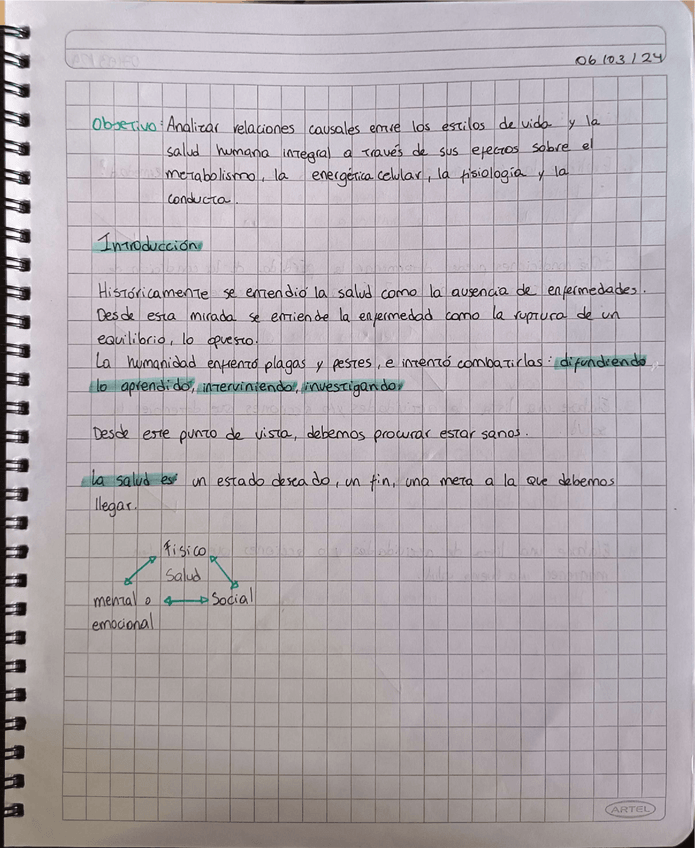 06/03/24
Objetivo: Analizar relaciones causales entre los estilos de vida y la
salud humana integral a través de sus efectos sobre el
metabolismo, la energética celular, la fisiología y la
conducta.
Introducción
Históricamente se entendió la salud como la ausencia de enfermedades.
Desde esta mirada se entiende la enfermedad como la ruptura de un
equilibrio, lo opuesto.
La humanidad enfrentó plagas y pestes, e intentó combatirlas: difundiendo
lo aprendido, interviniendo, investigando.
Desde este punto de vista, debemos procurar estar sanos.
La salud es un estado deseado, un fin, una meta a la que debemos
llegar.
físico
Salud
mental o
Social
emocional
ARTEL